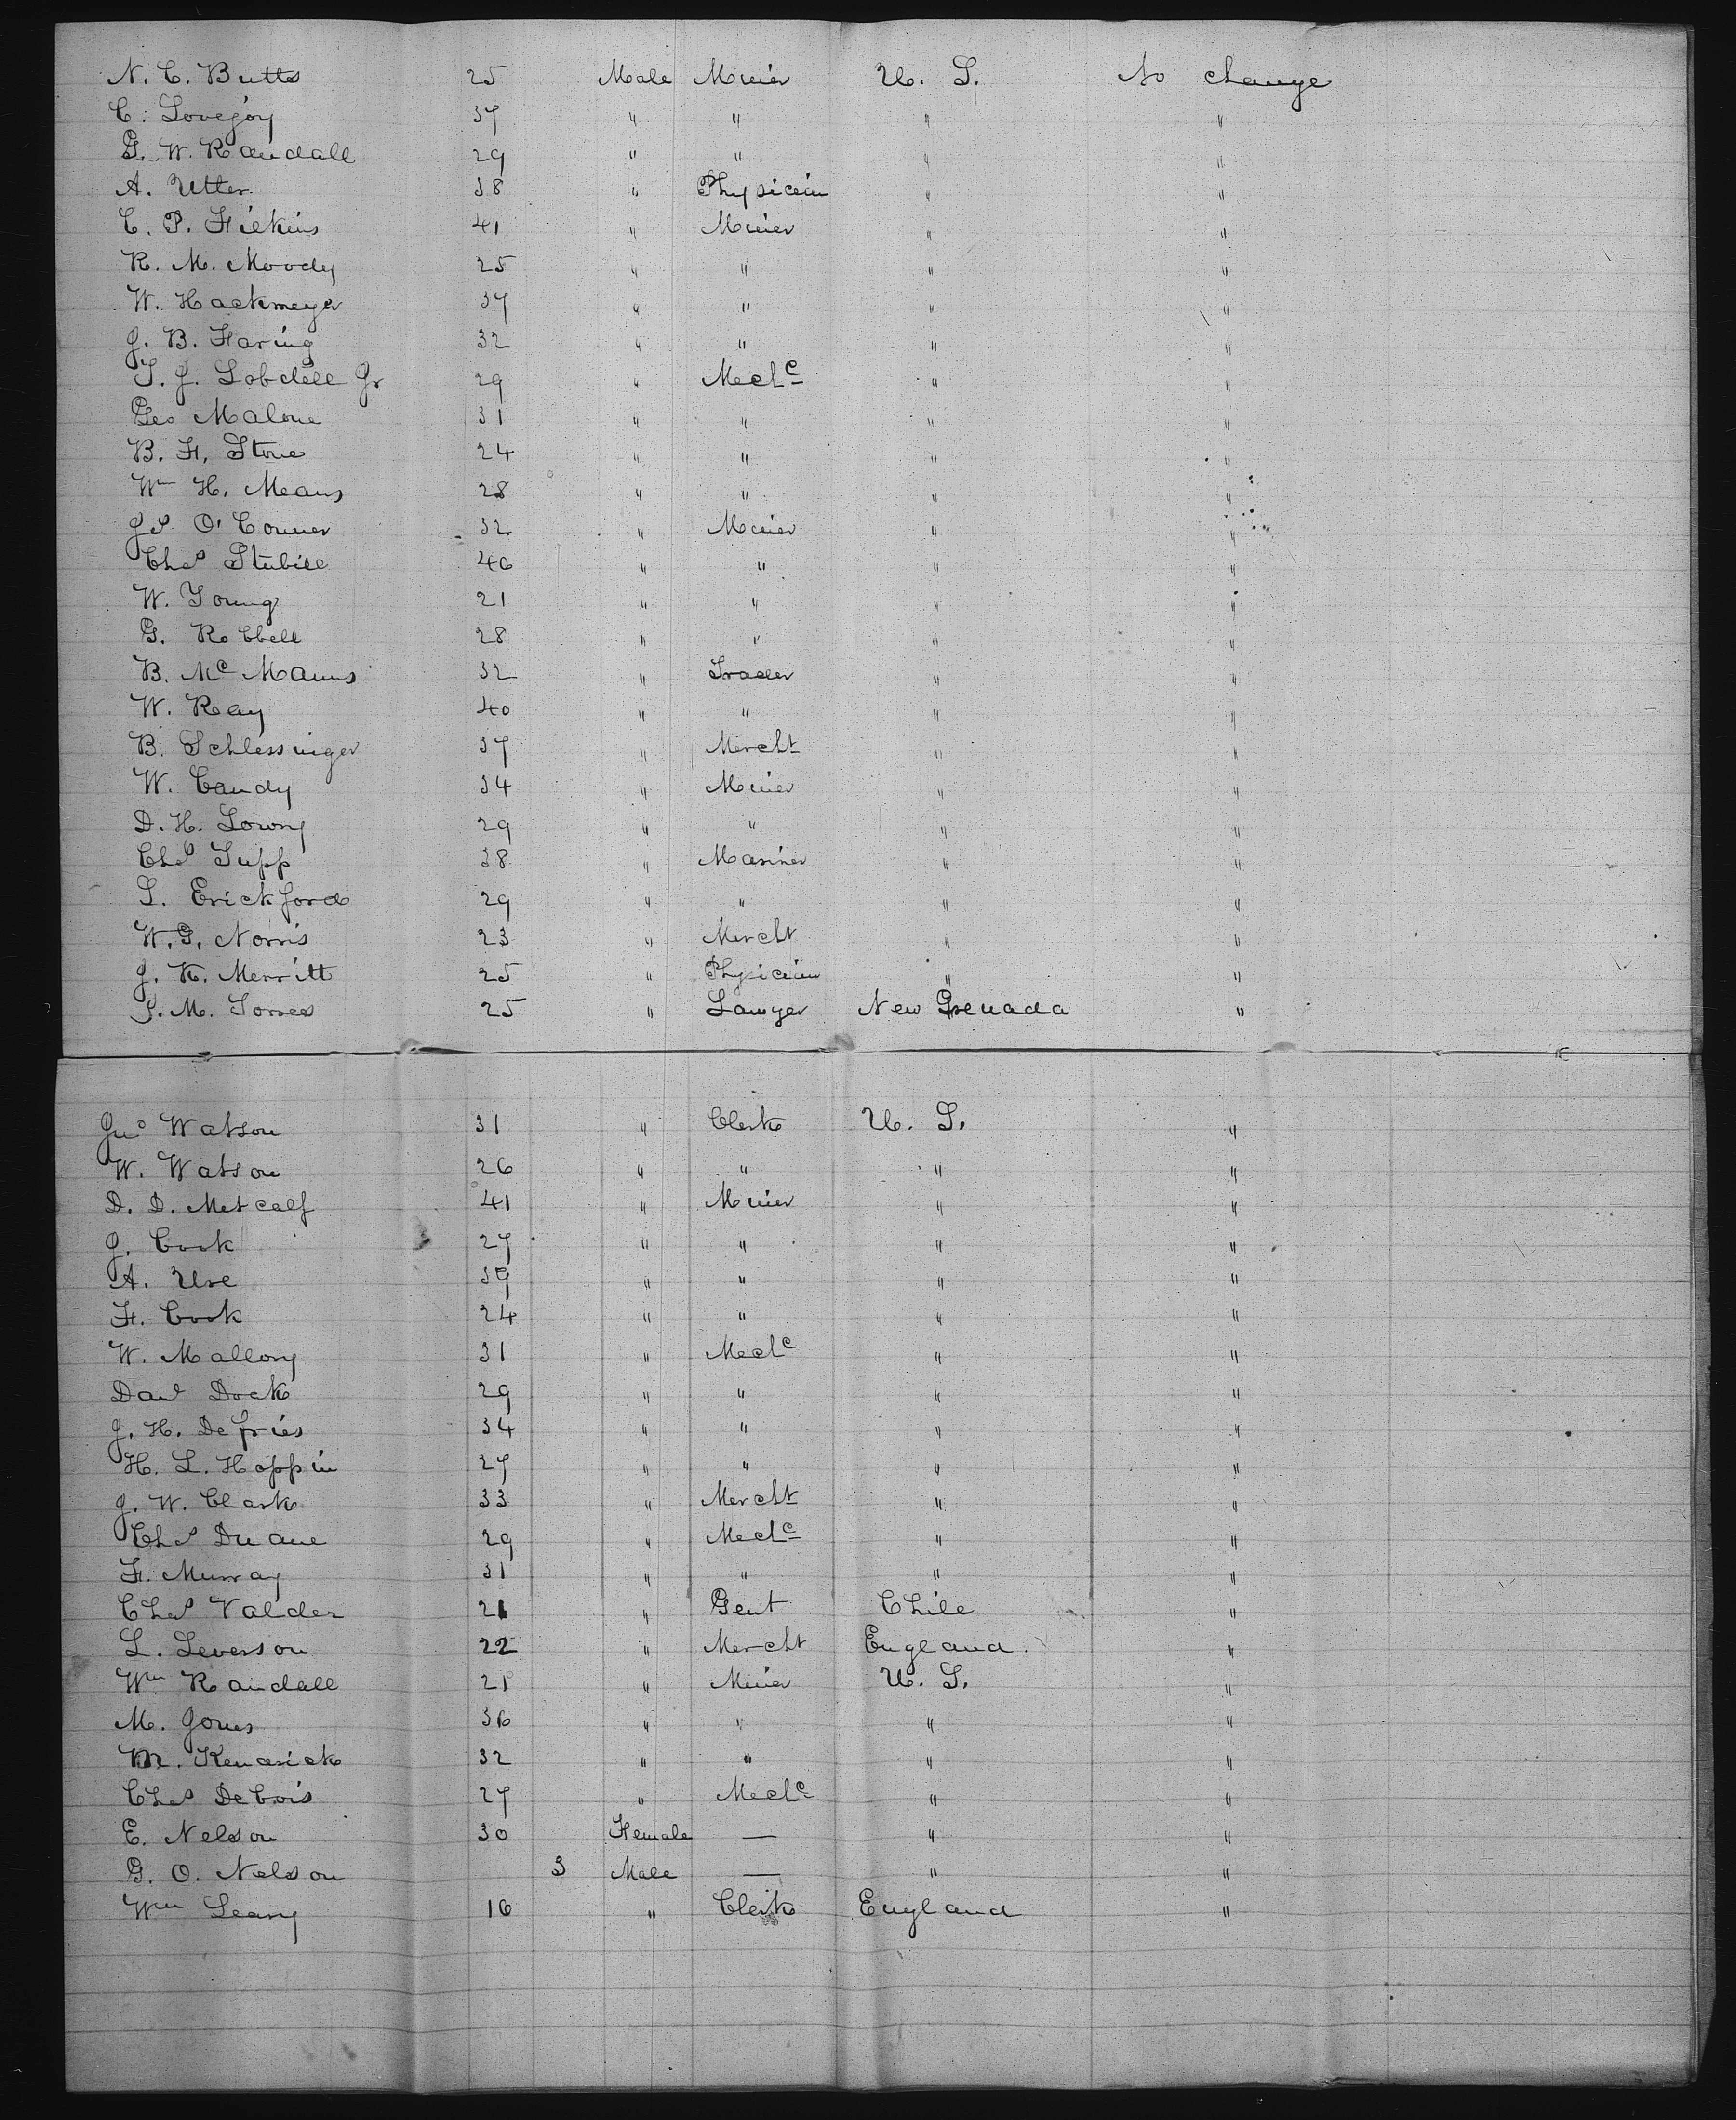 N. C. Butts 25 Male Miner U. S. No change
C. Lovejoy 37 " " " "
G. W. Randall 29 " " " "
A. Utter 38 " Physicein " "
C. P. Filkins 41 " Miner " "
R. M. Moody 25 " " " "
W. Hackmeyer 37 " " " "
J. B. Haring 32 " " " "
T. J. Lobdell Jr 29 " Mechc " "
Geo Malone 31 " " " "
B. F. Stone 24 " " " "
Wm H. Means 28 " " " "
Js O'Conner 32 " Miner " "
Chas Stubill 46 " " " "
W. Young 21 " " " "
G. Robbell 28 " " " "
B. McManus 32 " Trader " "
W. Ray 40 " " " "
B. Schlessinger 37 " Mercht " "
W. Candy 34 " Miner " "
D. H. Lowry 29 " " " "
Chas Tupp 38 " Mariner " "
L. Erickford 29 " " " "
W. G. Norris 23 " Mercht " "
J. K. Merritt 25 " Physician " "
P. M. Torres 25 " Lawyer New Grenada "
Jno Watson 31 " Clerk U. S. "
W. Watson 26 " " " "
D. D. Metcalf 41 " Miner " "
J. Cook 27 " " " "
A. Ure 39 " " " "
F. Cook 24 " " " "
W. Mallory 31 " Mechc " "
Davd Dock 29 " " " "
J. H. Defries 34 " " " "
H. L. Hoppin 27 " " " "
J. W. Clark 33 " Mercht " "
Chas Duane 29 " Mechc " "
F. Murray 31 " " " "
Chas Valdez 21 " Gent Chile "
L. Leverson 22 " Mercht England "
Wm Randall 21 " Miner U. S. "
M. Jones 36 " " " "
M. Kendrick 32 " " " "
Chas Debois 27 " Mechc " "
E. Nelson 30 Female — " "
G. O. Nelson 3 Male — " "
Wm Leary 16 " Clerk England "